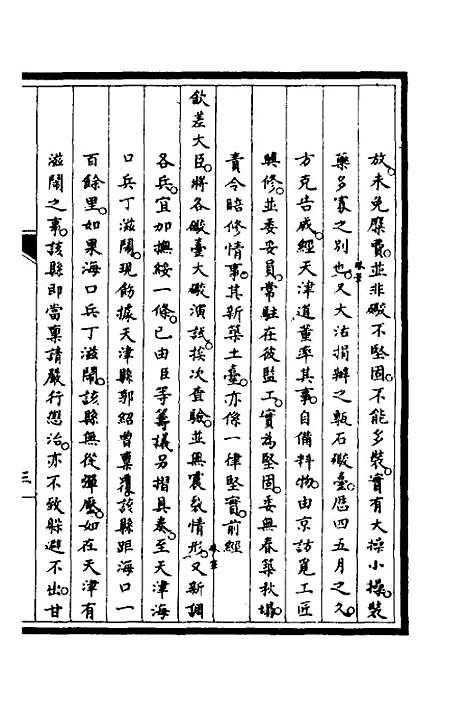 放。未免糜費。並非礮不堅固。不能多裝。實有大操小操。裝
藥多寡之別也。又大沽捐辦之甎石礮臺。歷四五月之久。
方克告成。經天津道董率其事。自備料物。由京訪覓工匠
興修。並委委員。常駐在彼監工。實為堅固。委無春築秋塌。
責令賠修情事。其新築土臺。亦係一律堅實。前經
欽差大臣。將各礮臺大礮演試。挨次查驗。並無震裂情形。又新調
各兵。宜加撫綏一條。已由臣等籌議另摺具奏。至天津海
口兵丁滋鬧。現飭據天津縣郭紹曾稟覆。該縣距海口一
百餘里。如果海口兵丁滋鬧。該縣無從彈壓。如在天津有
滋鬧之事。該縣即當稟請嚴行懲治。亦不致躲避不出。甘
三